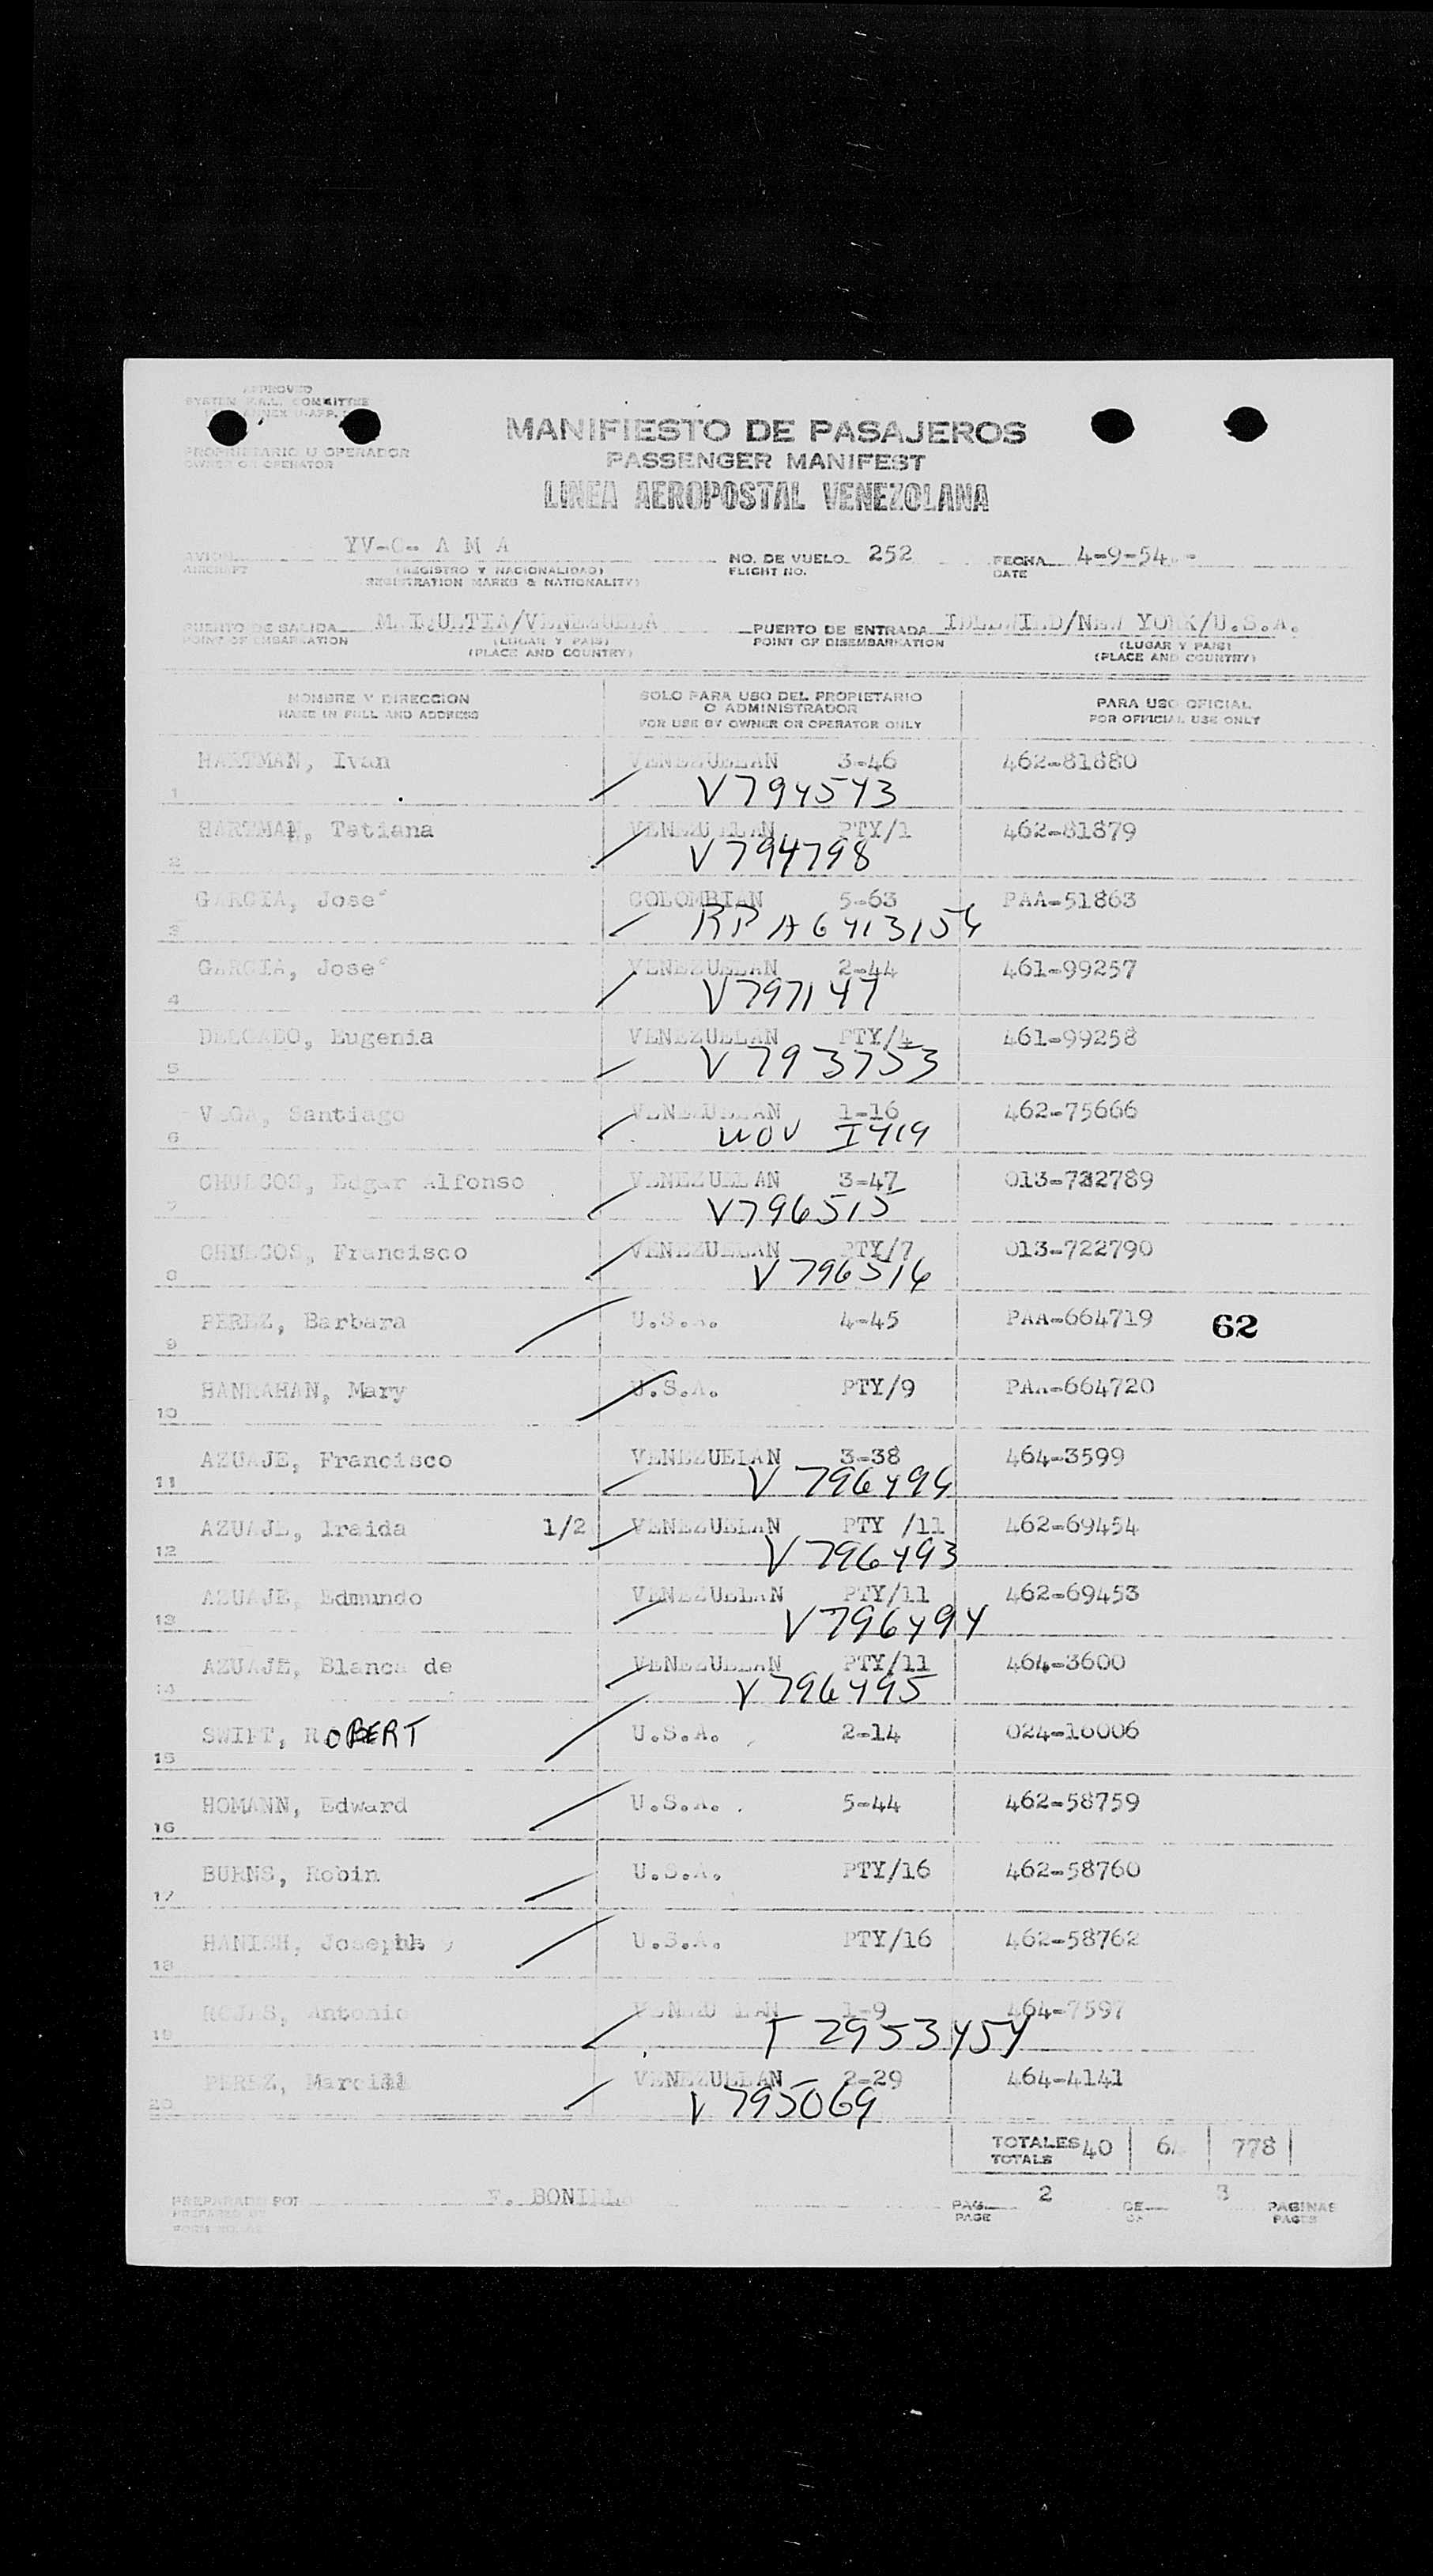 APPROVED
SYSTEM F.A.L. COMMITTEE
ANNEX 9-APP.
PROPIETARIO U OPERADOR
OWNER OR OPERATOR
MANIFIESTO DE PASAJEROS
PASSENGER MANIFEST
LINEA AEROPOSTAL VENEZOLANA
AVION YV-C- A M A NO. DE VUELO 252 FECHA 4-9-54.-
AIRCRAFT (REGISTRO Y NACIONALIDAD) FLIGHT NO. DATE
REGISTRATION MARKS & NATIONALITY)
PUERTO DE SALIDA MAIQUETIA/VENEZUELA PUERTO DE ENTRADA IDLEWILD/NEW YORK/U.S.A.
POINT OF EMBARKATION (LUGAR Y PAIS) POINT OF DISEMBARKATION (LUGAR Y PAIS)
(PLACE AND COUNTRY) (PLACE AND COUNTRY)
NOMBRE Y DIRECCION SOLO PARA USO DEL PROPIETARIO PARA USO OFICIAL
NAME IN FULL AND ADDRESS O ADMINISTRADOR FOR OFFICIAL USE ONLY
FOR USE BY OWNER OR OPERATOR ONLY
HARTMAN, Ivan VENEZUELAN 3-46 462-81880
1 V794543
HARTMAN, Tatiana VENEZUELAN PTY/1 462-81879
2 V794798
GARCIA, Jose COLOMBIAN 5-63 PAA-51863
3 RP A6413154
GARCIA, Jose VENEZUELAN 2-44 461-99257
4 V797147
DELGADO, Eugenia VENEZUELAN PTY/4 461-99258
5 V793753
VEGA, Santiago VENEZUELAN 1-16 462-75666
6 NOV I419
CHUECOS, Edgar Alfonso VENEZUELAN 3-47 013-722789
7 V796515
CHUECOS, Francisco VENEZUELAN PTY/7 013-722790
8 V796516
PEREZ, Barbara U.S.A. 4-45 PAA-664719 62
9
HANRAHAN, Mary U.S.A. PTY/9 PAA-664720
10
AZUAJE, Francisco VENEZUELAN 3-38 464-3599
11 V 796496
AZUAJE, Iraida 1/2 VENEZUELAN PTY /11 462-69454
12 V 796493
AZUAJE, Edmundo VENEZUELAN PTY/11 462-69453
13 V796494
AZUAJE, Blanca de VENEZUELAN PTY/11 464-3600
14 V796495
SWIFT, ROBERT U.S.A. 2-14 024-16006
15
HOMANN, Edward U.S.A. 5-44 462-58759
16
BURNS, Robin U.S.A. PTY/16 462-58760
17
HANISH, Joseph U.S.A. PTY/16 462-58762
18
ROJAS, Antonio VENEZUELAN 1-9 464-7597
19 T 2953454
PEREZ, Marcial VENEZUELAN 2-29 464-4141
20 V795069
TOTALES 40 778
TOTALS
PREPARADO POR F. BONILLA PAG. 2 DE 3 PAGINAS
PREPARED BY PAGE OF PAGES